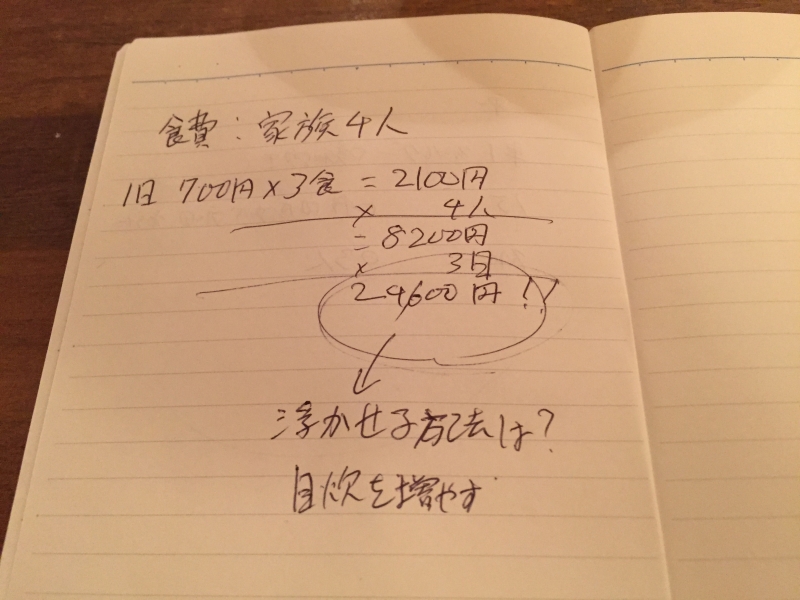 食費：家族4人
1日 700円×3食＝2100円
× 4人
＝8200円
× 3日
24600円!!
浮かせる方法は?
自炊を増やす